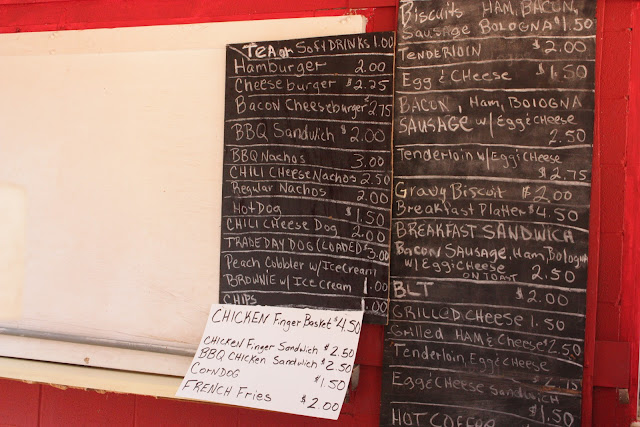 TEA or Soft DRINKS 1.00
Hamburger 2.00
Cheeseburger $2.25
Bacon Cheeseburger $2.75
BBQ Sandwich $2.00
BBQ Nachos 3.00
CHILI CHEESE Nachos 2.50
Regular Nachos 2.00
HOT DOG $1.50
CHILI CHEESE Dog 2.00
TRADE DAY DOG (LOADED) 3.00
Peach Cobbler w/ Ice Cream
BROWNIE w/ Ice Cream 1.00
CHIPS 1.00
CHICKEN Finger Basket $4.50
CHICKEN Finger Sandwich $2.50
BBQ CHICKEN Sandwich $2.50
CORNDOG $1.50
FRENCH Fries $2.00
Biscuits HAM, BACON,
Sausage BOLOGNA $1.50
TENDERLOIN $2.00
Egg & CHeese $1.50
BACON, Ham, BOLOGNA
SAUSAGE w/ Egg & CHEESE
2.50
Tenderloin w/ Egg & CHEESE
$2.75
Gravy Biscuit $2.00
Breakfast Platter $4.50
BREAKFAST SANDWICH
Bacon Sausage, Ham, Bologna
w/ EGG & CHEESE
ON TOAST 2.50
BLT $2.00
GRILLED CHEESE 1.50
Grilled HAM & Cheese $2.50
Tenderloin Egg & CHEESE
$2.75
Egg & CHEESE SANDWICH
$1.50
HOT COFFEE